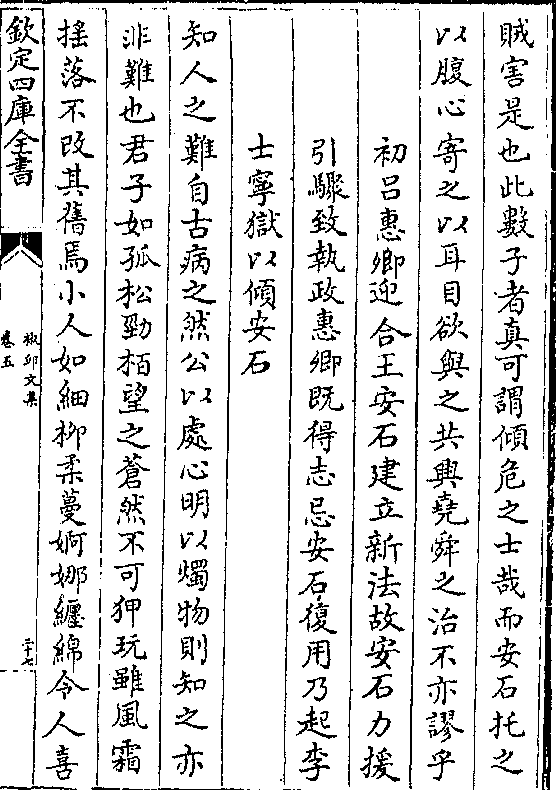 賊害是也此數子者真可謂傾危之士哉而安石托之
以腹心寄之以耳目欲與之共興堯舜之治不亦謬乎
初吕惠卿迎合王安石建立新法故安石力援
引驟致執政惠卿既得志忌安石復用乃起李
士寧獄以傾安石
知人之難自古病之然公以處心明以燭物則知之亦
非難也君子如孤松勁栢望之蒼然不可狎玩雖風霜
揺落不改其舊焉小人如細柳柔蔓婀娜纒綿令人喜
欽定四庫全書
椒邱文集
卷五
二十七